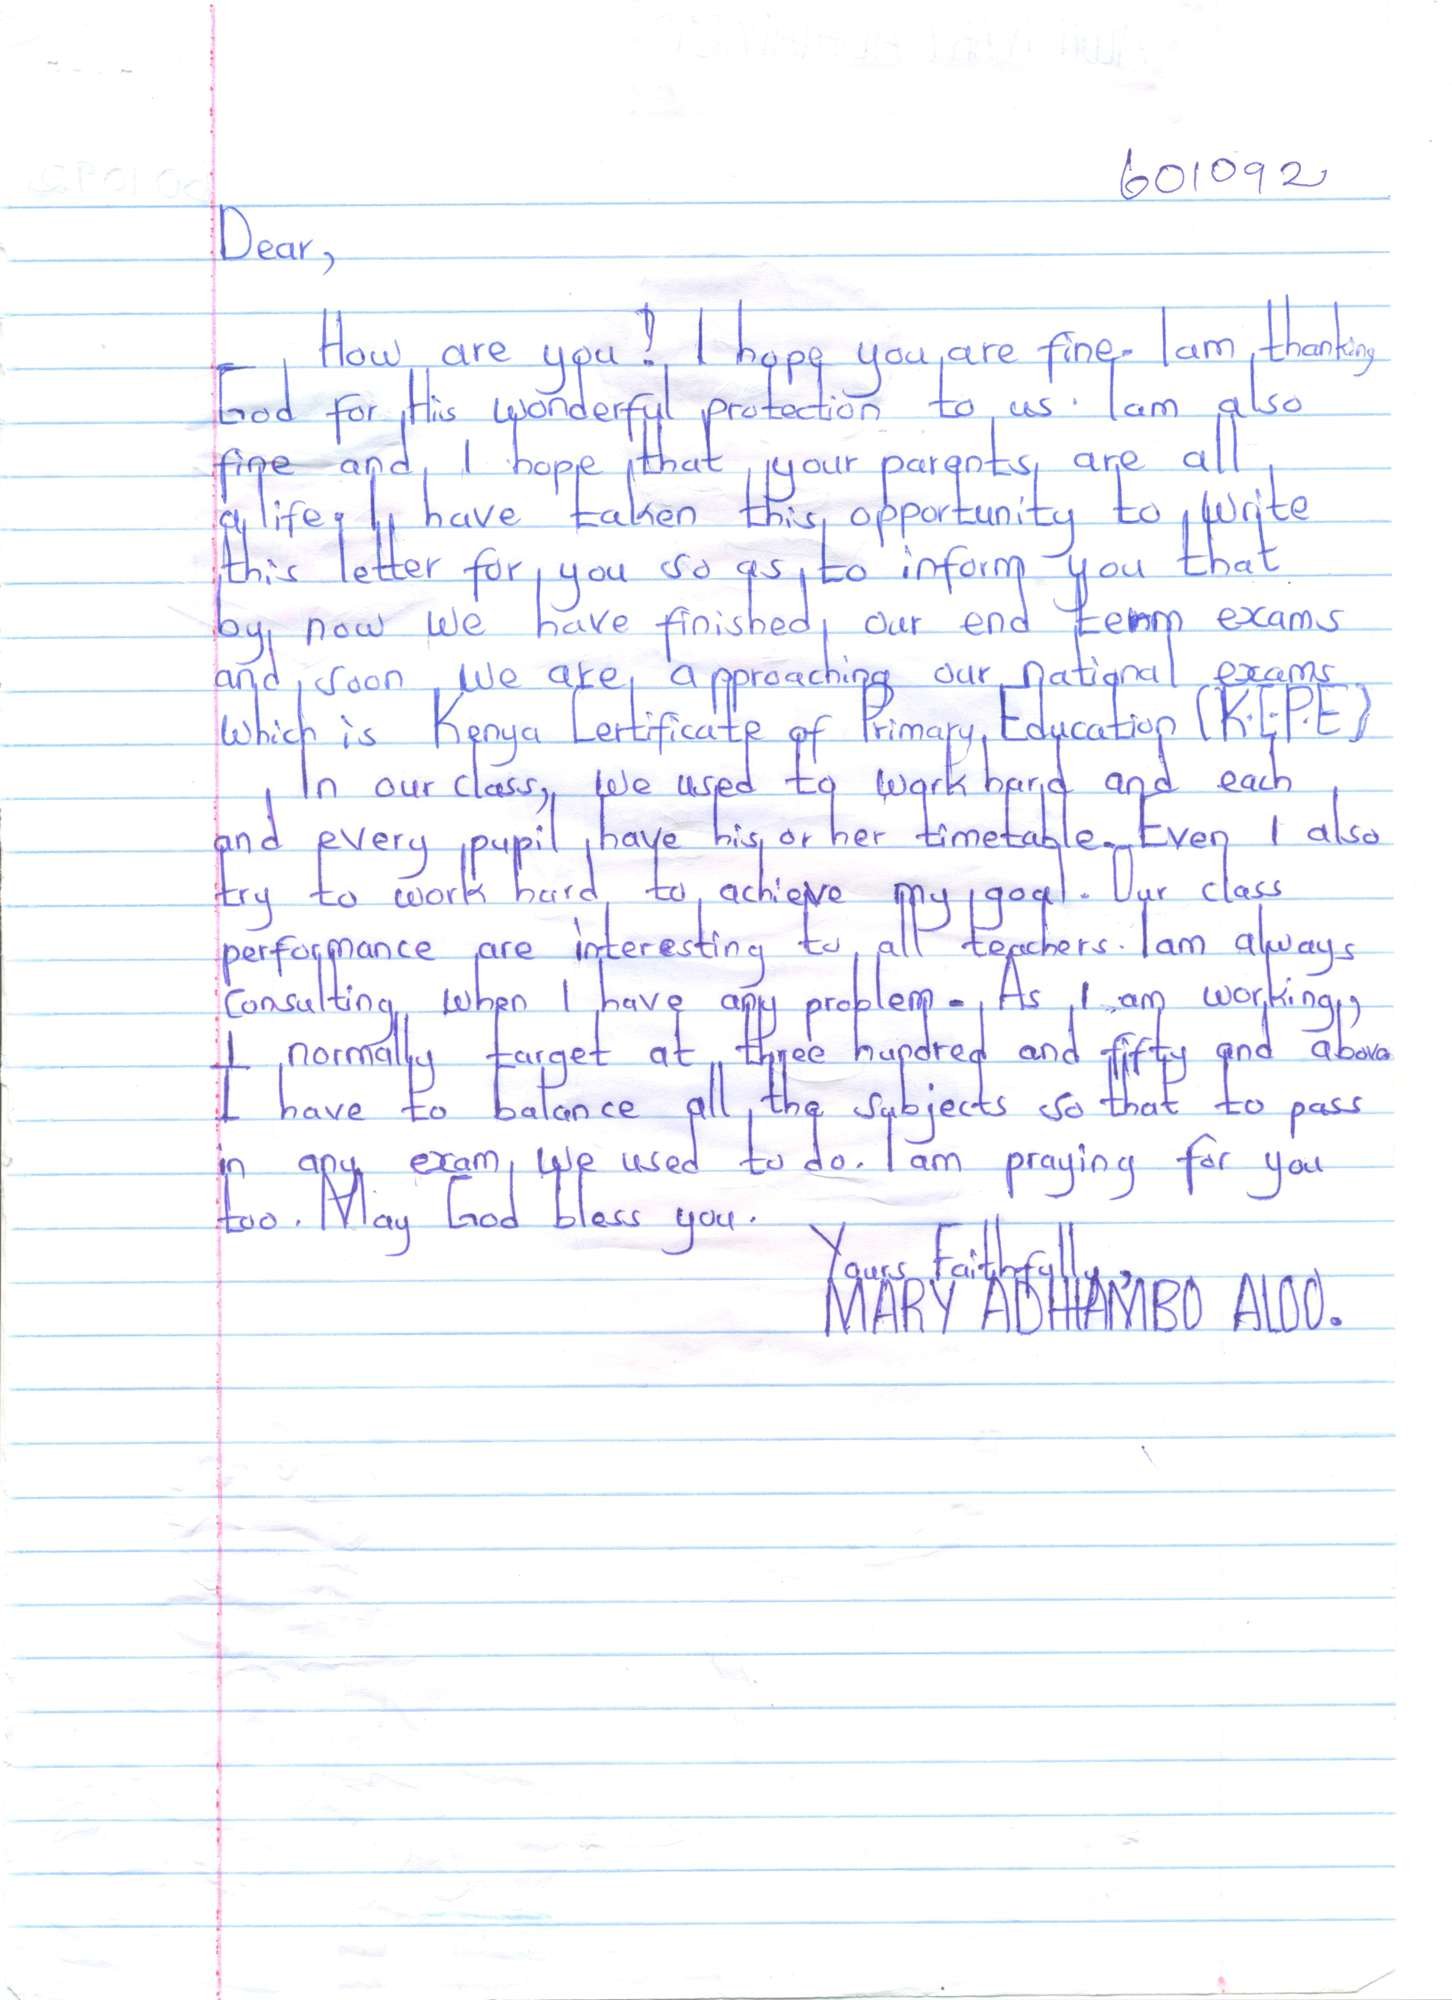 601092
Dear,
How are you? I hope you are fine. Iam thanking
God for His wonderful protection to us. Iam also
fine and I hope that your parents are all
a life. I have taken this opportunity to write
this letter for you so as to inform you that
by now we have finished our end term exams
and soon we are approaching our national exams
which is Kenya Certificate of Primary Education (K.C.P.E)
In our class, we used to work hard and each
and every pupil have his or her timetable. Even I also
try to work hard to achieve my goal. Our class
performance are interesting to all teachers. Iam always
Consulting when I have any problem. As I am working,
I normally target at three hundred and fifty and above
I have to balance all the subjects so that to pass
in any exam we used to do. I am praying for you
too. May God bless you.
Yours Faithfully,
MARY ADHIAMBO ALOO.